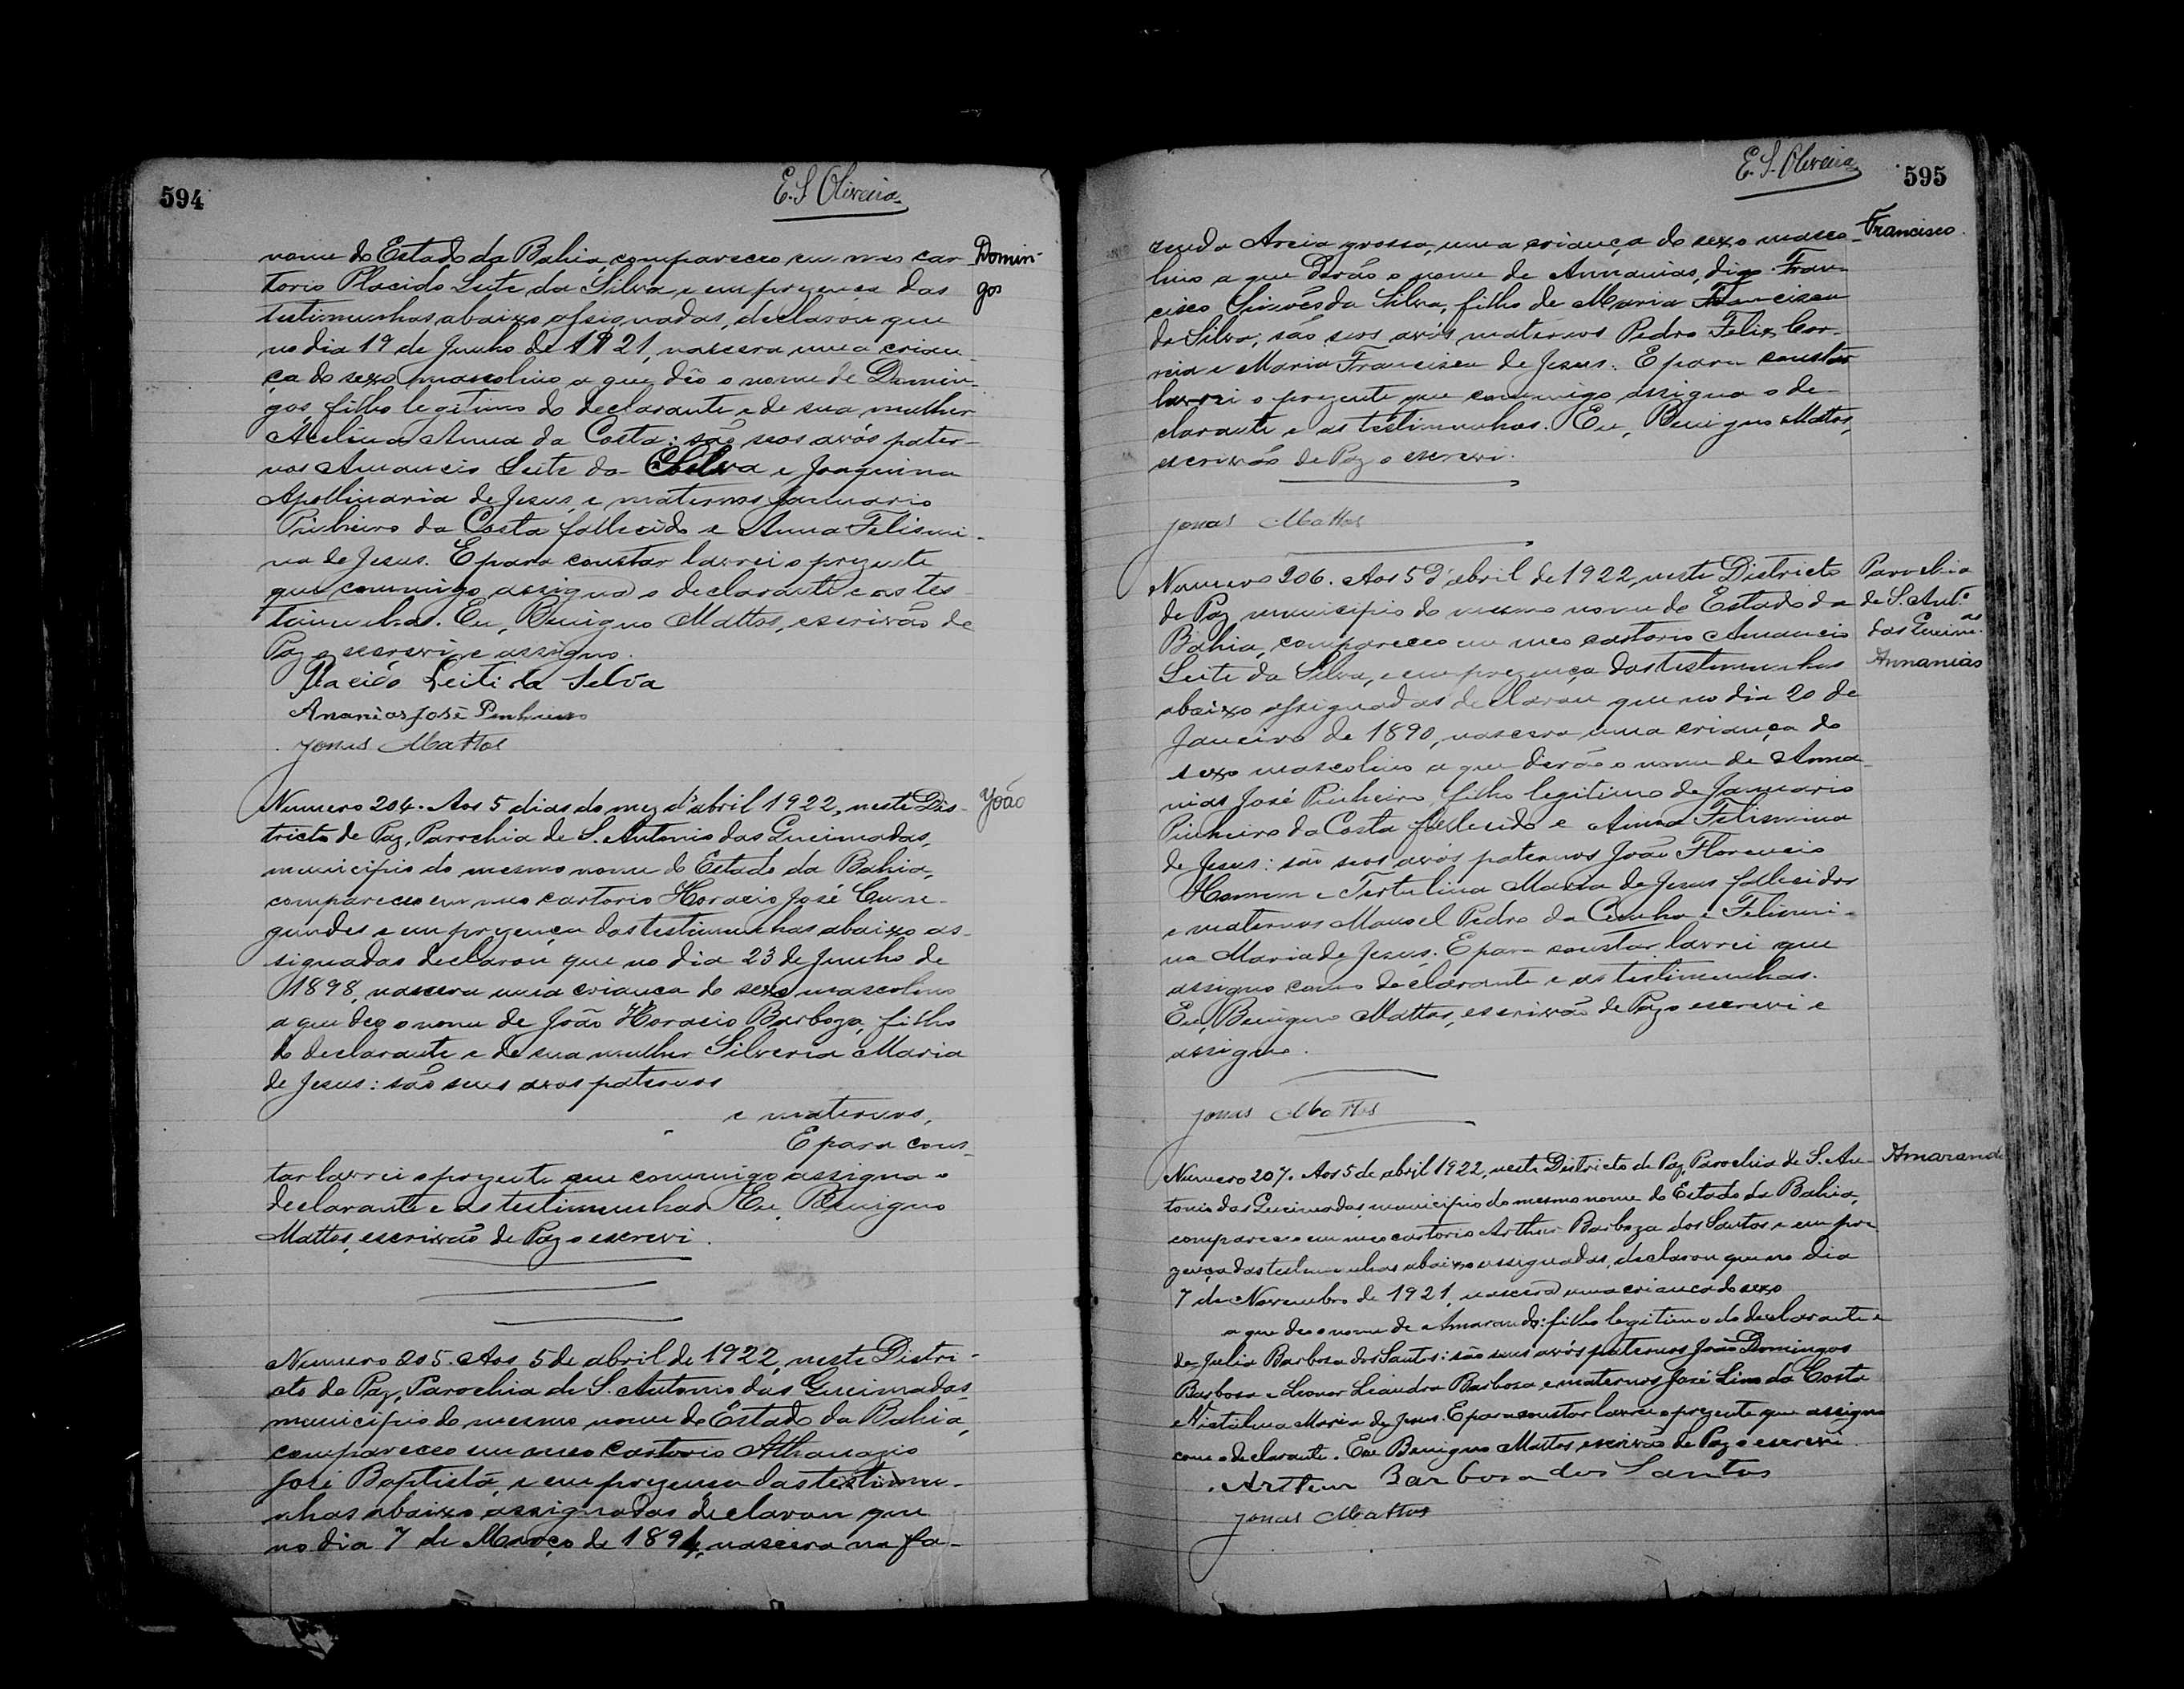 594
E. S. Oliveira
nome do Estado da Bahia, compareceo em meu car-
torio Placido Leite da Silva e em prezença das
testimunhas abaixo assignadas, declarou que
no dia 19 de Junho de 1921, nascera uma crian-
ça do sexo masculino a que dão o nome de Domin-
gos, filho legitimo do declarante e de sua mulher
Anna da Costa: são seos avós pater-
nos Amancio Leite da Silva e Joaquina
Apollinaria de Jesus, e maternos Januario
Pinheiro da Costa fallecido e Anna Felismi-
na de Jesus. E para constar lavrei o prezente
que commigo assigna o declarante e as tes-
timunhas. Eu, Benigno Mattos, escrivão de
Paz o escrevi e assigno.
Placido Leiti da Selva
Ananias José Pinheiro
Jonas Mattos
Domin-
gos
Numero 204. Aos 5 dias do mez d'abril 1922, neste Dis-
tricto de Paz, Parochia de S. Antonio das Queimadas,
municipio do mesmo nome do Estado da Bahia,
compareceo em meo cartorio Horacio José Cune-
gundes e em prezença das testimunhas abaixo as-
signadas declarou que no dia 23 de Junho de
1898, nascera uma criança do sexo masculino
a que deo o nome de João Horacio Barboza, filho
do declarante e de sua mulher Silveria Maria
de Jesus: são seus avos paternos
e maternos,
E para cons-
tar lavrei o prezente que commigo assigna o
declarante e as testimunhas. Eu, Benigno
Mattos, escrivão de Paz o escrevi.
João
Numero 205. Aos 5 de abril de 1922, neste Distri-
cto de Paz, Parochia de S. Antonio das Queimadas
municipio do mesmo nome do Estado da Bahia,
compareceo em meo cartorio Athanazio
José Baptista, e em prezença das testimu-
nhas abaixo assignadas declarou que
no dia 7 de Março de 1894, nascera na fa-
E. S. Oliveira
595
zenda Areia grossa, uma criança do sexo mascu-
lino a que derão o nome de Annanias, digo Fran-
cisco Simões da Silva, filho de Maria Francisca
da Silva, são seos avós maternos Pedro Felix Cor-
reia e Maria Francisca de Jesus. E para constar
lavrei o prezente que commigo assigna o de-
clarante e as testimunhas. Eu, Benigno Mattos,
escrivão de Paz o escrevi.
Jonas Mattos
Francisco.
Numero 206. Aos 5 d'abril de 1922, neste Districto
de Paz, municipio do mesmo nome do Estado da
Bahia, compareceo em meo cartorio Amancio
Leite da Silva, e em prezença das testimunhas
abaixo assignadas declarou que no dia 20 de
Janeiro de 1890, nascera uma criança do
sexo masculino a que derão o nome de Anna-
nias José Pinheiro, filho legitimo de Januario
Pinheiro da Costa fallecido e Anna Felismina
de Jesus: são seos avós paternos João Florencio
Homem e Tertulina Maria de Jesus fallecidos
e maternos Manoel Pedro da Cunha e Felismi-
na Maria de Jesus. E para constar lavrei que
assigno com o declarante e as testimunhas.
Eu, Benigno Mattos, escrivão de Paz o escrevi e
assigno.
Jonas Mattos
Parochia
de S. Antº
das Queim.as
Annanias
Numero 207. Aos 5 de abril 1922, neste Districto de Paz, Parochia de S. An-
tonio das Queimadas, municipio do mesmo nome do Estado da Bahia,
compareceo em meo cartorio Arthur Barboza dos Santos e em pre-
zença das testimunhas abaixo assignadas, declarou que no dia
7 de Novembro de 1921, nascera uma criança do sexo
a que deo o nome de Amarando: filho legitimo do declarante e
de Julia Barbosa dos Santos: são seus avós paternos João Domingos
Barbosa e Leonor Leandra Barbosa e maternos José Lino da Costa
e Maria de Jesus. E para constar lavrei o prezente que assigno
com o declarante. Eu Benigno Mattos, escrivão de Paz o escrevi.
Arthur Barbosa dos Santos
Jonas Mattos
Amarando